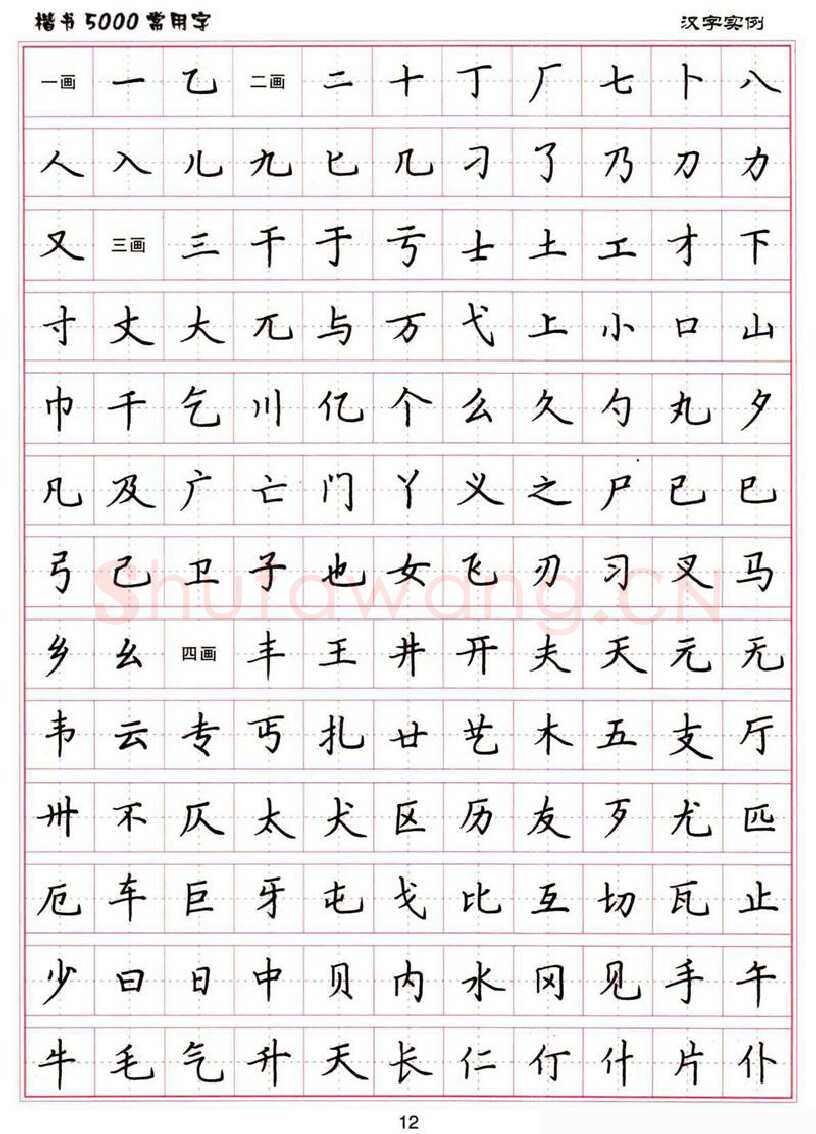 楷书5000常用字 汉字实例
一画 一 乙 二画 二 十 丁 厂 七 卜 八
人 入 儿 九 匕 几 刁 了 乃 刀 力
又 三画 三 干 于 亏 士 土 工 才 下
寸 丈 大 兀 与 万 弋 上 小 口 山
巾 千 乞 川 亿 个 么 久 勺 丸 夕
凡 及 广 亡 门 丫 义 之 尸 已 巳
弓 己 卫 子 也 女 飞 刃 习 叉 马
乡 幺 四画 丰 王 井 开 夫 天 元 无
韦 云 专 丐 扎 廿 艺 木 五 支 厅
卅 不 仄 太 犬 区 历 友 歹 尤 匹
厄 车 巨 牙 屯 戈 比 互 切 瓦 止
少 曰 日 中 贝 内 水 冈 见 手 午
牛 毛 气 升 夭 长 仁 仃 什 片 仆
Shufawang.CN
12